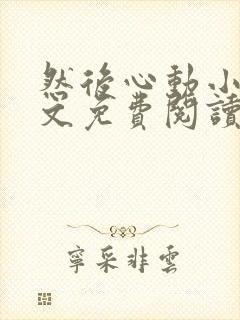 然後心動小
文免費閱讀
寧采非雲